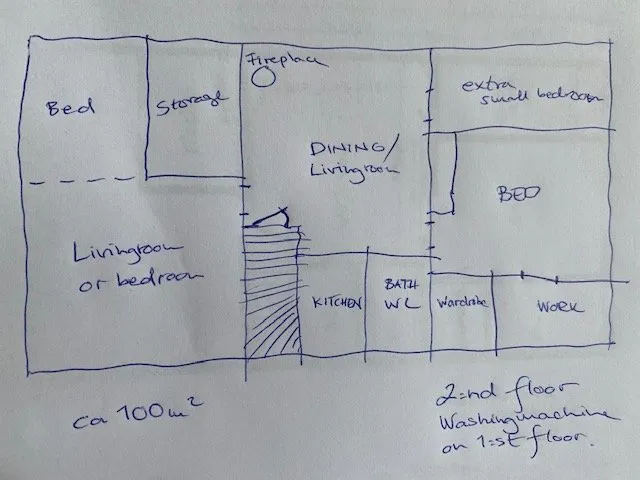 Fireplace
Bed
Storage
extra
small bedroom
DINING/
Livingroom
BED
Livingroom
or bedroom
KITCHEN
BATH
WC
Wardrobe
WORK
ca 100m²
2:nd floor
Washingmachine
on 1:st floor.